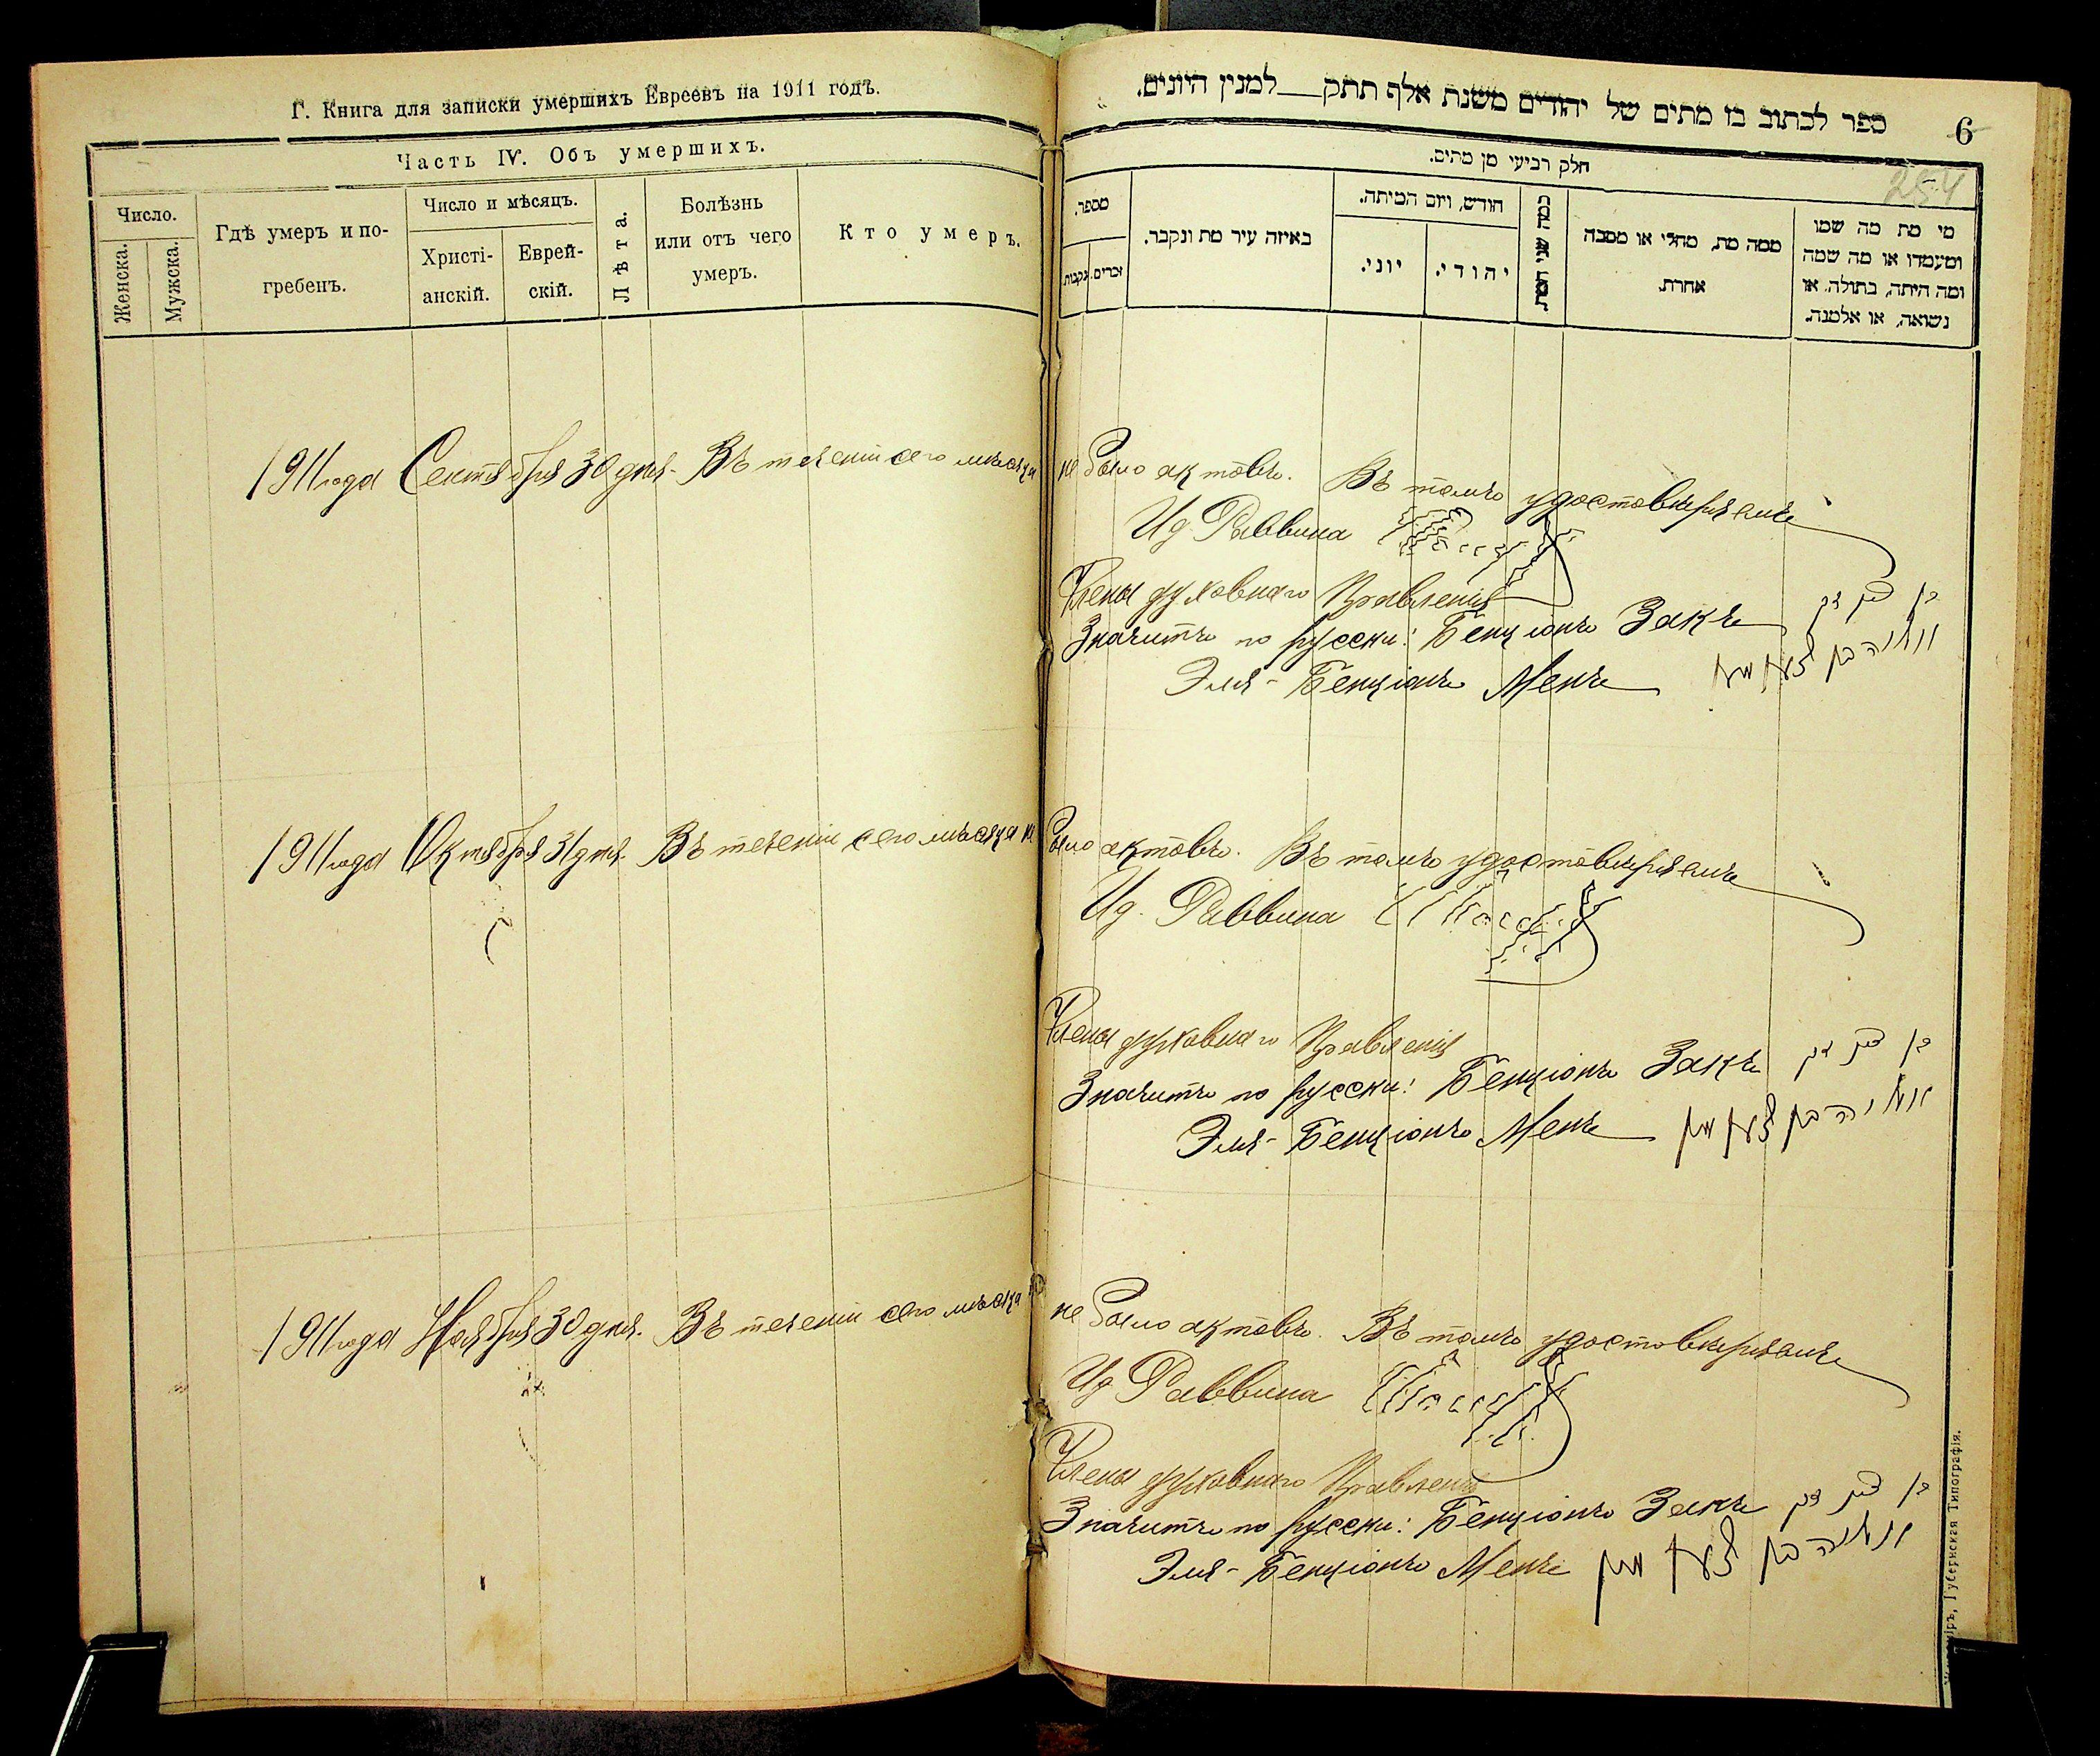 Г. Книга для записки умершихъ Евреевъ на 1911 годъ.
Часть IV. Объ умершихъ.
Число.
Женска.
Мужска.
Гдѣ умеръ и по-
гребенъ.
Число и мѣсяцъ.
Христі-
анскій.
Еврей-
скій.
Лѣта.
Болѣзнь
или отъ чего
умеръ.
Кто умеръ.
ספר לכתוב בו מתים של יהודים משנת אלף תתק___למנין היונים.
6
254
חלק רביעי מן מתים.
מספר.
זכרים.
נקבות
באיזה עיר מת ונקבר.
חודש, ויום המיתה.
יוני.
יהודי.
כמה שני המת.
ממה מת, מחלי או מסבה
אחרת.
מי מת מה שמו
ומעמדו או מה שמה
ומה היתה, בתולה, או
נשואה, או אלמנה.
1911 года Сентября 30 дня. Въ теченіи сего мѣсяца не было актовъ. Въ томъ удостовѣряемъ
Ид. Раввина
Члены духовнаго Правленія
Значитъ по русски: Бенціонъ Закъ בן ציון זק
Эля-Бенціонъ Менъ אליה בן ציון מען
1911 года Октября 31 дня. Въ теченіи сего мѣсяца не было актовъ. Въ томъ удостовѣряемъ
Ид. Раввина
Члены духовнаго Правленія
Значитъ по русски: Бенціонъ Закъ בן ציון זק
Эля-Бенціонъ Менъ אליה בן ציון מען
1911 года Ноября 30 дня. Въ теченіи сего мѣсяца не было актовъ. Въ томъ удостовѣряемъ
Ид. Раввина
Члены духовнаго Правленія
Значитъ по русски: Бенціонъ Закъ בן ציון זק
Эля-Бенціонъ Менъ אליה בן ציון מען
Губернская Типографія.